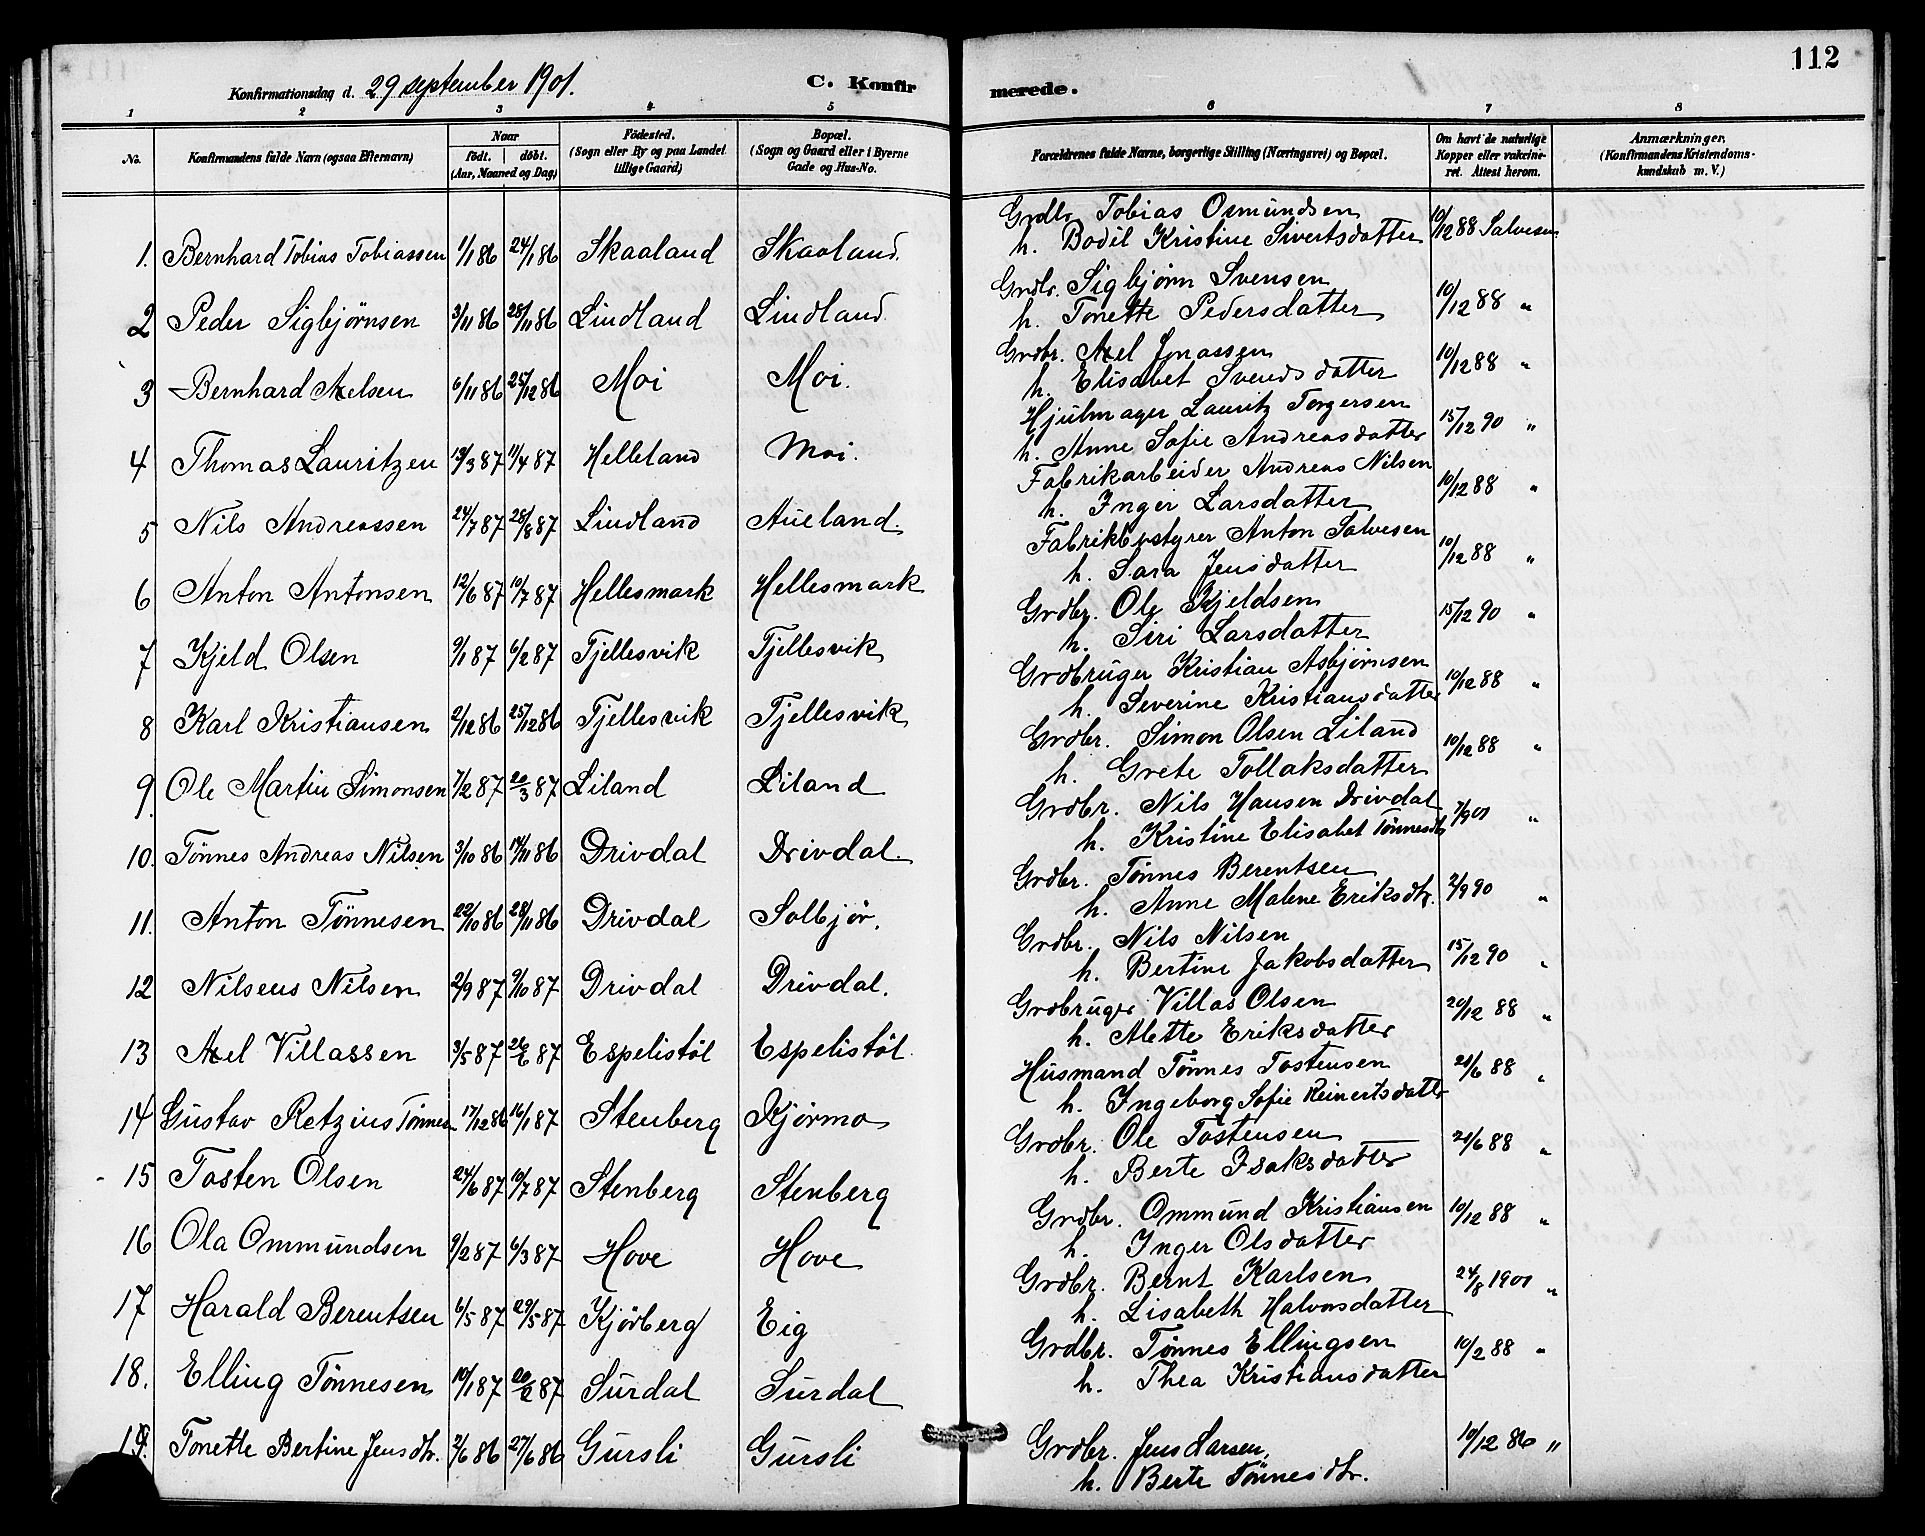 112
Konfirmationsdag d. 29 september 1901. C. Konfirmerede.
1 2 3 4 5 6 7 8
No. Konfirmandens fulde Navn (ogsaa Efternavn) Naar født. døbt. (Aar, Maaned og Dag) Fødested. (Sogn eller By og paa Landet tillige Gaard) Bopæl. (Sogn og Gaard eller i Byerne Gade og Hus-No. Forældrenes fulde Navne, borgerlige Stilling (Næringsvei) og Bopæl. Om havt de naturlige Kopper eller vaccineret. Attest herom. Anmærkninger. (Konfirmandens Kristendomskundskab m. V.)
1. Bernhard Tobias Tobiassen 1/1 86 24/1 86 Skaaland Skaaland. Grdbr. Tobias Osmundsen h. Bodil Kristine Sivertsdatter 10/12 88 Salvesen
2 Peder Sigbjørnsen 3/11 86 28/11 86 Lindland Lindland. Grdbr. Sigbjørn Svensen h. Tonette Pedersdatter 10/12 88 "
3 Bernhard Axelsen 6/11 86 25/12 86 Moi Moi. Grdbr. Axel Jonassen h. Elisabet Svendsdatter 10/12 88 "
4 Thomas Lauritzen 13/3 87 11/4 87 Helleland Moi. Hjulmager Lauritz Torgersen h. Anne Sofie Andreasdatter 15/12 90 "
5 Nils Andreassen 24/7 87 28/8 87 Lindland Aueland. Fabrikarbeider Andreas Nilsen h. Inger Larsdatter 10/12 88 "
6 Anton Antonsen 12/6 87 10/7 87 Hellesmark Hellesmark Fabrikbestyrer Anton Salvesen h. Sara Jensdatter 10/12 88 "
7 Kjeld Olsen 9/1 87 6/2 87 Tjellesvik Tjellesvik Grdbr. Ole Kjeldsen h. Siri Larsdatter 15/12 90 "
8 Karl Kristiansen 2/12 86 25/12 86 Tjellesvik Tjellesvik Grdbruger Kristian Asbjørnsen h. Severine Kristiansdatter 10/12 88 "
9. Ole Martin Simonsen 7/2 87 20/3 87 Liland Liland Grdbr. Simon Olsen Liland h. Grete Tollaksdatter 10/12 88 "
10. Tønnes Andreas Nilsen 3/10 86 14/11 86 Drivdal Drivdal. Grdbr. Nils Hansen Drivdal h. Kristine Elisabet Tønnesdtr 7/9 01 "
11. Anton Tønnesen 22/10 86 28/11 86 Drivdal Solbjør. Grdbr. Tønnes Berentsen h. Anne Malene Eriksdtr. 2/9 90 "
12 Nilseus Nilsen 2/9 87 9/10 87 Drivdal Drivdal. Grdbr. Nils Nilsen h. Bertine Jakobsdatter 15/12 90 "
13 Axel Villassen 3/5 87 26/6 87 Espelistøl Espelistøl. Grdbruger Villas Olsen h. Mette Eriksdatter 20/12 88 "
14 Gustav Retzius Tønnes. 17/12 86 16/1 87 Stenberg Kjørmo Husmand Tønnes Tostensen h. Ingeborg Sofie Reinertsdattr 21/6 88 "
15 Tosten Olsen 24/6 87 10/7 87 Stenberg Stenberg Grdbr. Ole Tostensen h. Berte Isaksdatter 21/6 88 "
16 Ola Ommundsen 9/2 87 6/3 87 Hove Hove Grdbr. Ommund Kristiansen h. Inger Olsdatter 10/12 88 "
17 Harald Berentsen 6/5 87 29/5 87 Kjørberg Eig Grdbr. Bernt Karlsen h. Lisabeth Halvorsdatter 24/8 1901 "
18. Elling Tønnesen 10/1 87 20/2 87 Surdal Surdal Grdbr. Tønnes Ellingsen h. Thea Kristiansdatter 10/2 88 "
19. Tonette Bertine Jensdtr. 2/6 86 27/6 86 Gursli Gursli Grdbr. Jens Larsen, h. Berte Tønnesdtr. 10/12 86 "